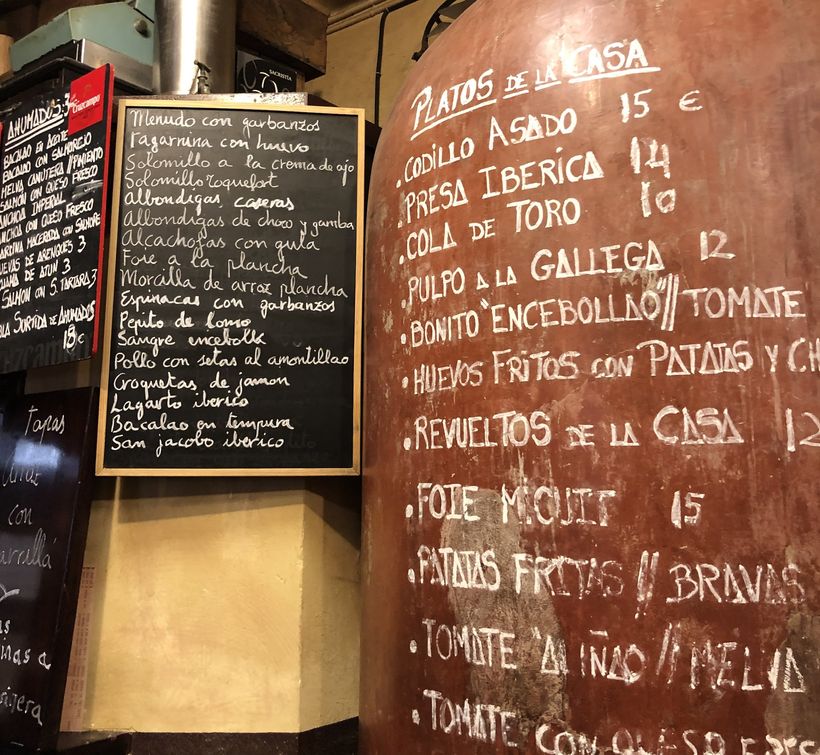 AHUMADOS: 3
Cruzcampo
BACALAO EN ACEITE
BACALAO CON SALMOREJO
MELVA CANUTERA//PIMIENTO
SALMON CON QUESO FRESCO
ANCHOA IMPERIAL
ANCHOA CON QUESO FRESCO
SARDINA MACERADA CON SALMOREJO
HUEVAS DE ARENQUES 3
DE ATUN 3
SALMON CON S. TARTARA 3
SURTIDA DE AHUMADOS
18 €
Tapas
con
SACRISTIA
Menudo con garbanzos
Tagarnina con huevo
Solomillo a la crema de ajo
Solomillo roquefort
Albondigas caseras
Albondigas de choco y gamba
Alcachofas con gula
Foie a la plancha
Morcilla de arroz plancha
Espinacas con garbanzos
Pepito de lomo
Sangre encebolla
Pollo con setas al amontillao
Croquetas de jamon
Lagarto iberico
Bacalao en tempura
San jacobo iberico
PLATOS DE LA CASA
.CODILLO ASADO 15 €
.PRESA IBERICA 14
.COLA DE TORO 10
.PULPO A LA GALLEGA 12
.BONITO "ENCEBOLLAO"// TOMATE
.HUEVOS FRITOS CON PATATAS Y CH
.REVUELTOS DE LA CASA 12
.FOIE MICUIT 15
.PATATAS FRITAS // BRAVAS
.TOMATE "ALIÑAO // MELVA
.TOMATE CON QUESO FRESC